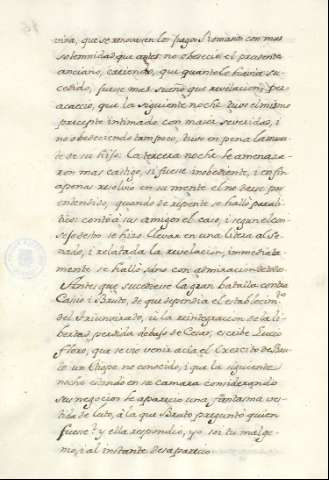 vida, que se renovasen los Juegos Romanos con mas
solemnidad que antes: no obeseciò el presente
anciano, creiendo, que quanto le havia su-
cedido, fuese mas sueño que revelacion; per
acaeciò, que la siguiente noche tuvo el mismo
precepto intimado con maior severidad, i
no obedeciendo tampoco, tuvo en pena la muer-
te de su hijo. La tercera noche le amenaza-
ron mas castigo, si fuese inobediente, i en fin
apenas resolviò en su mente el no darse por
entendido, quando de repente se hallò paralì-
tico: contò à sus amigos el caso, i segun el con-
sejo de estos se hizo llevar en una litera al Se-
nado, i relatada la revelacion, immediata-
mente se hallò sano con admiracion de todos.
Antes que sucediese la gran batalla contra
Casio i Bruto, de que dependia el establecim.to
del Triunvirado, ù la reintegracion de la li-
bertad, perdida debajo de Cesar, escribe Lucio
Floro, que se viò venir àcia el Exercito de Bru-
to un Etiope no conocido, i que la siguiente
noche estando en su camara considerando
su negocio le apareciò una fantasma ves-
tida de luto, à la que Bruto preguntò quien
fuese? y ella respondiò, yo soi tu mal ge-
nio, i al instante desapareciò